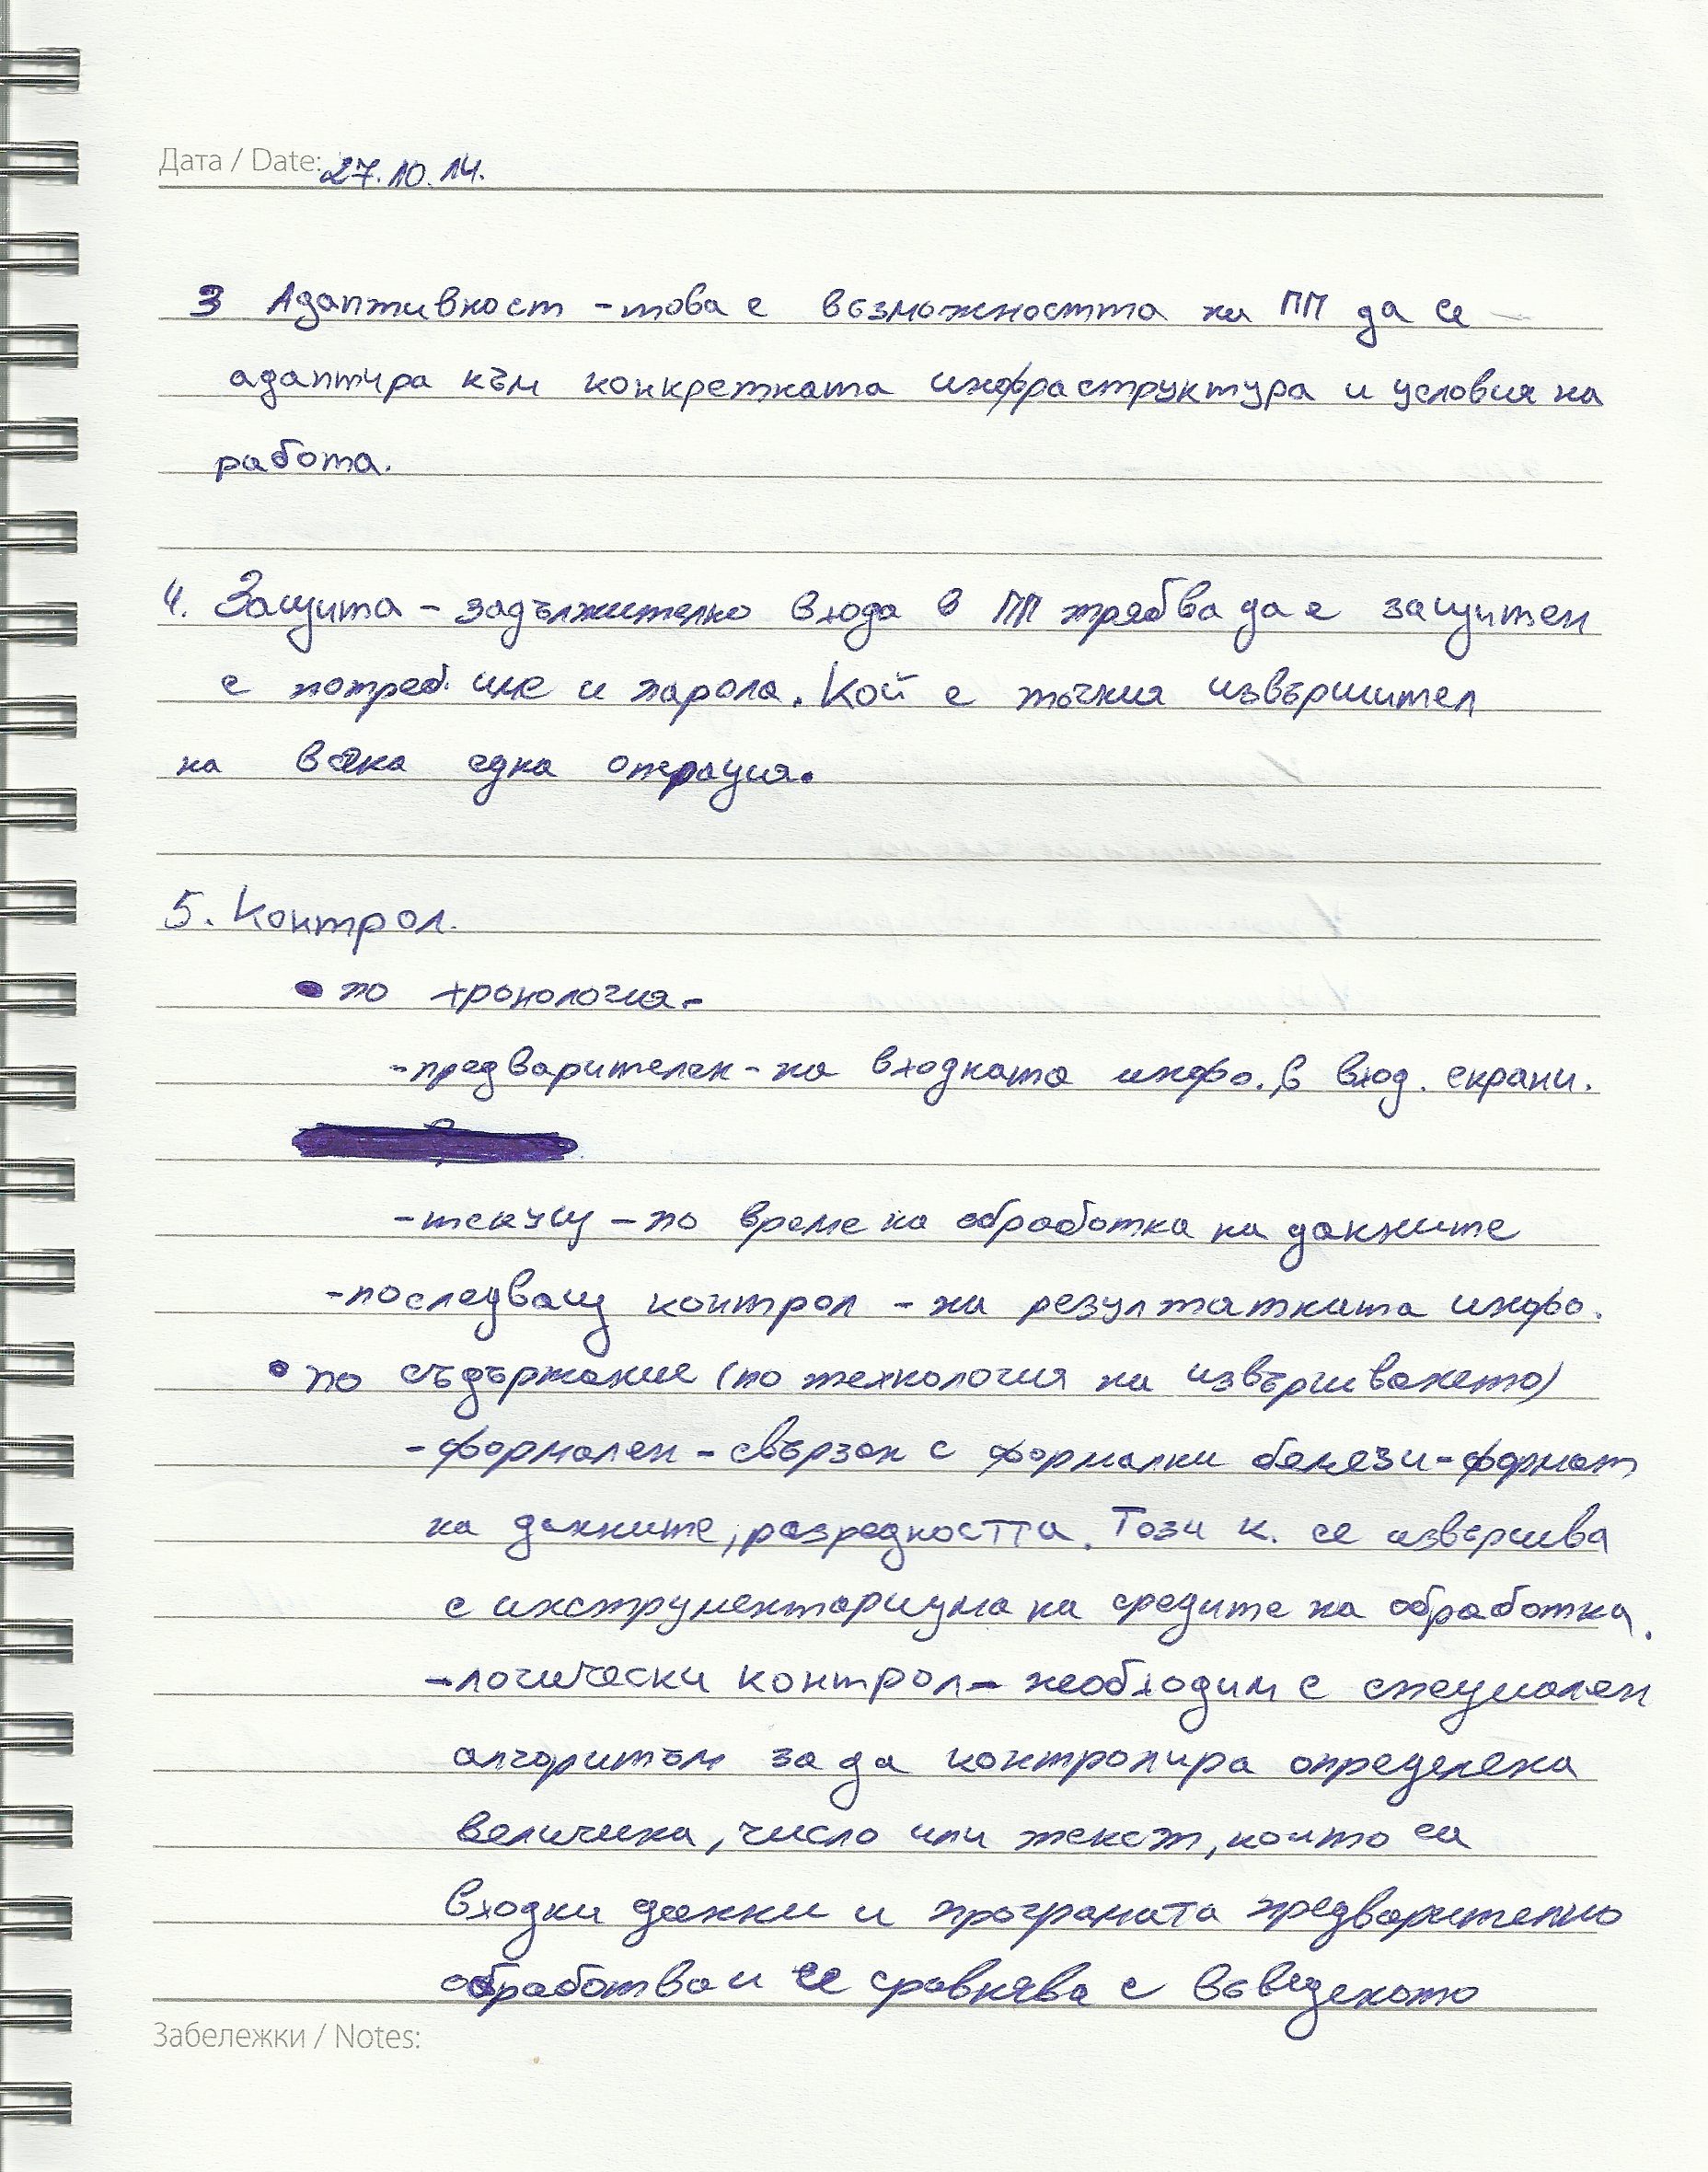 Дата / Date: 27.10.14.
3 Адаптивност - това е възможността на ПП да се
адаптира към конкретната инфраструктура и условия на
работа.
4. Защита - задължително входа в ПП трябва да е защитен
с потреб. име и парола. Кой е точния извършител
на всяка една операция.
5. Контрол.
• по хронология -
- предварителен - на входната инфо. в вход. екрани.
- текущ - по време на обработка на данните
- последващ контрол - на резултатната инфо.
• по съдържание (по технология на извършването)
- формален - свързан с формални белези - формат
на данните, разредността. Този к. се извършва
с инструментариума на средите на обработка.
- логически контрол - необходим е специален
алгоритъм за да контролира определена
величина, число или текст, които са
входни данни и програмата предварително
обработва и се сравнява с въведеното
Забележки / Notes: